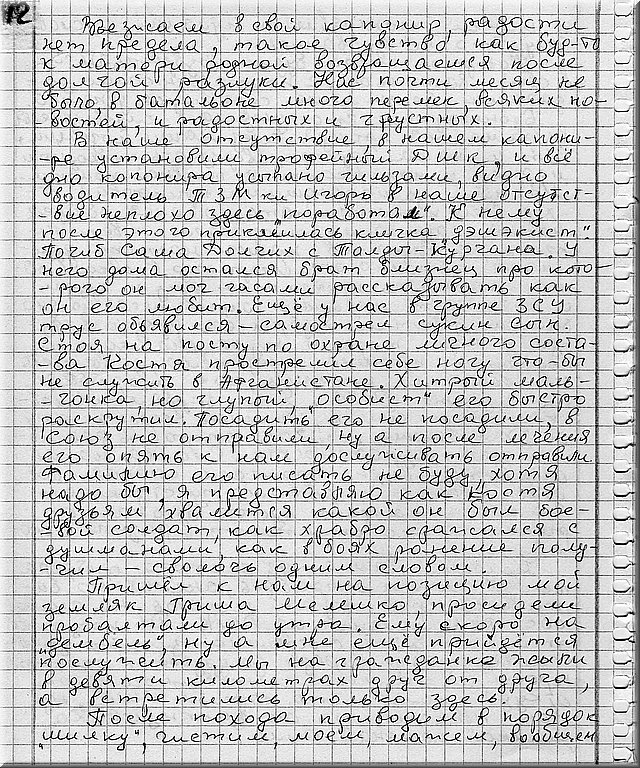 12
Въезжаем в свой капонир, радости
нет предела, такое чувство, как буд-то
к матери родной возвращаешся после
долгой разлуки. Нас почти месяц не
было, в батальоне много перемен, всяких но-
-востей, и радостных и грустных.
В наше отсутствие, в нашем капони-
-ре установили трофейный ДШК, и всё
дно копонира усыпано гильзами, видно
водитель ТЗМ ки Игорь в наше отсутст-
-вие неплохо здесь „поработал". К нему
после этого приклеилась кличка „дэшэкист."
Погиб Саша Долгих с Талды-Кургана. У
него дома остался брат близнец, про кото-
-рого он мог часами рассказывать как
он его любит. Ещё у нас в группе ЗСУ
трус обьявился – самострел сукин сын.
Стоя на посту по охране личного соста-
-ва Костя прострелил себе ногу что-бы
не служить в Афганистане. Хитрый маль-
-чонка, но глупый, „особист" его быстро
раскрутил. Посадить его не посадили, в
Союз не отправили, ну а после лечения
его опять к нам дослуживать отправили.
Фамилию его писать не буду, хотя
надо бы, я представляю как Костя
друзьям хвалится какой он был бое-
-вой солдат, как храбро сражался с
душманами, как в боях ранение полу-
-чил – сволочь одним словом.
Пришёл к нам на позицию мой
земляк Гриша Мелешко, просидели
пробалтали до утра. Ему скоро на
„дембель", ну а мне ещё прийдётся
послужить. Мы на гражданке жили
в девяти километрах друг от друга,
а встретились только здесь.
После похода приводим в порядок
„шилку", чистим, моем, мажем, вообщем